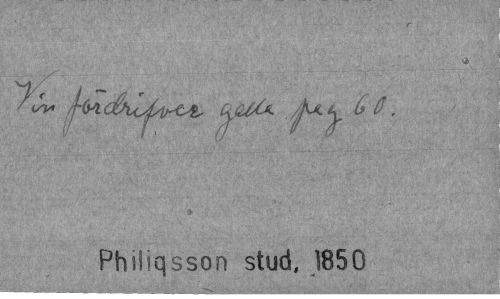 Vin fördrifver gella pag 60.
Philiqsson stud, 1850